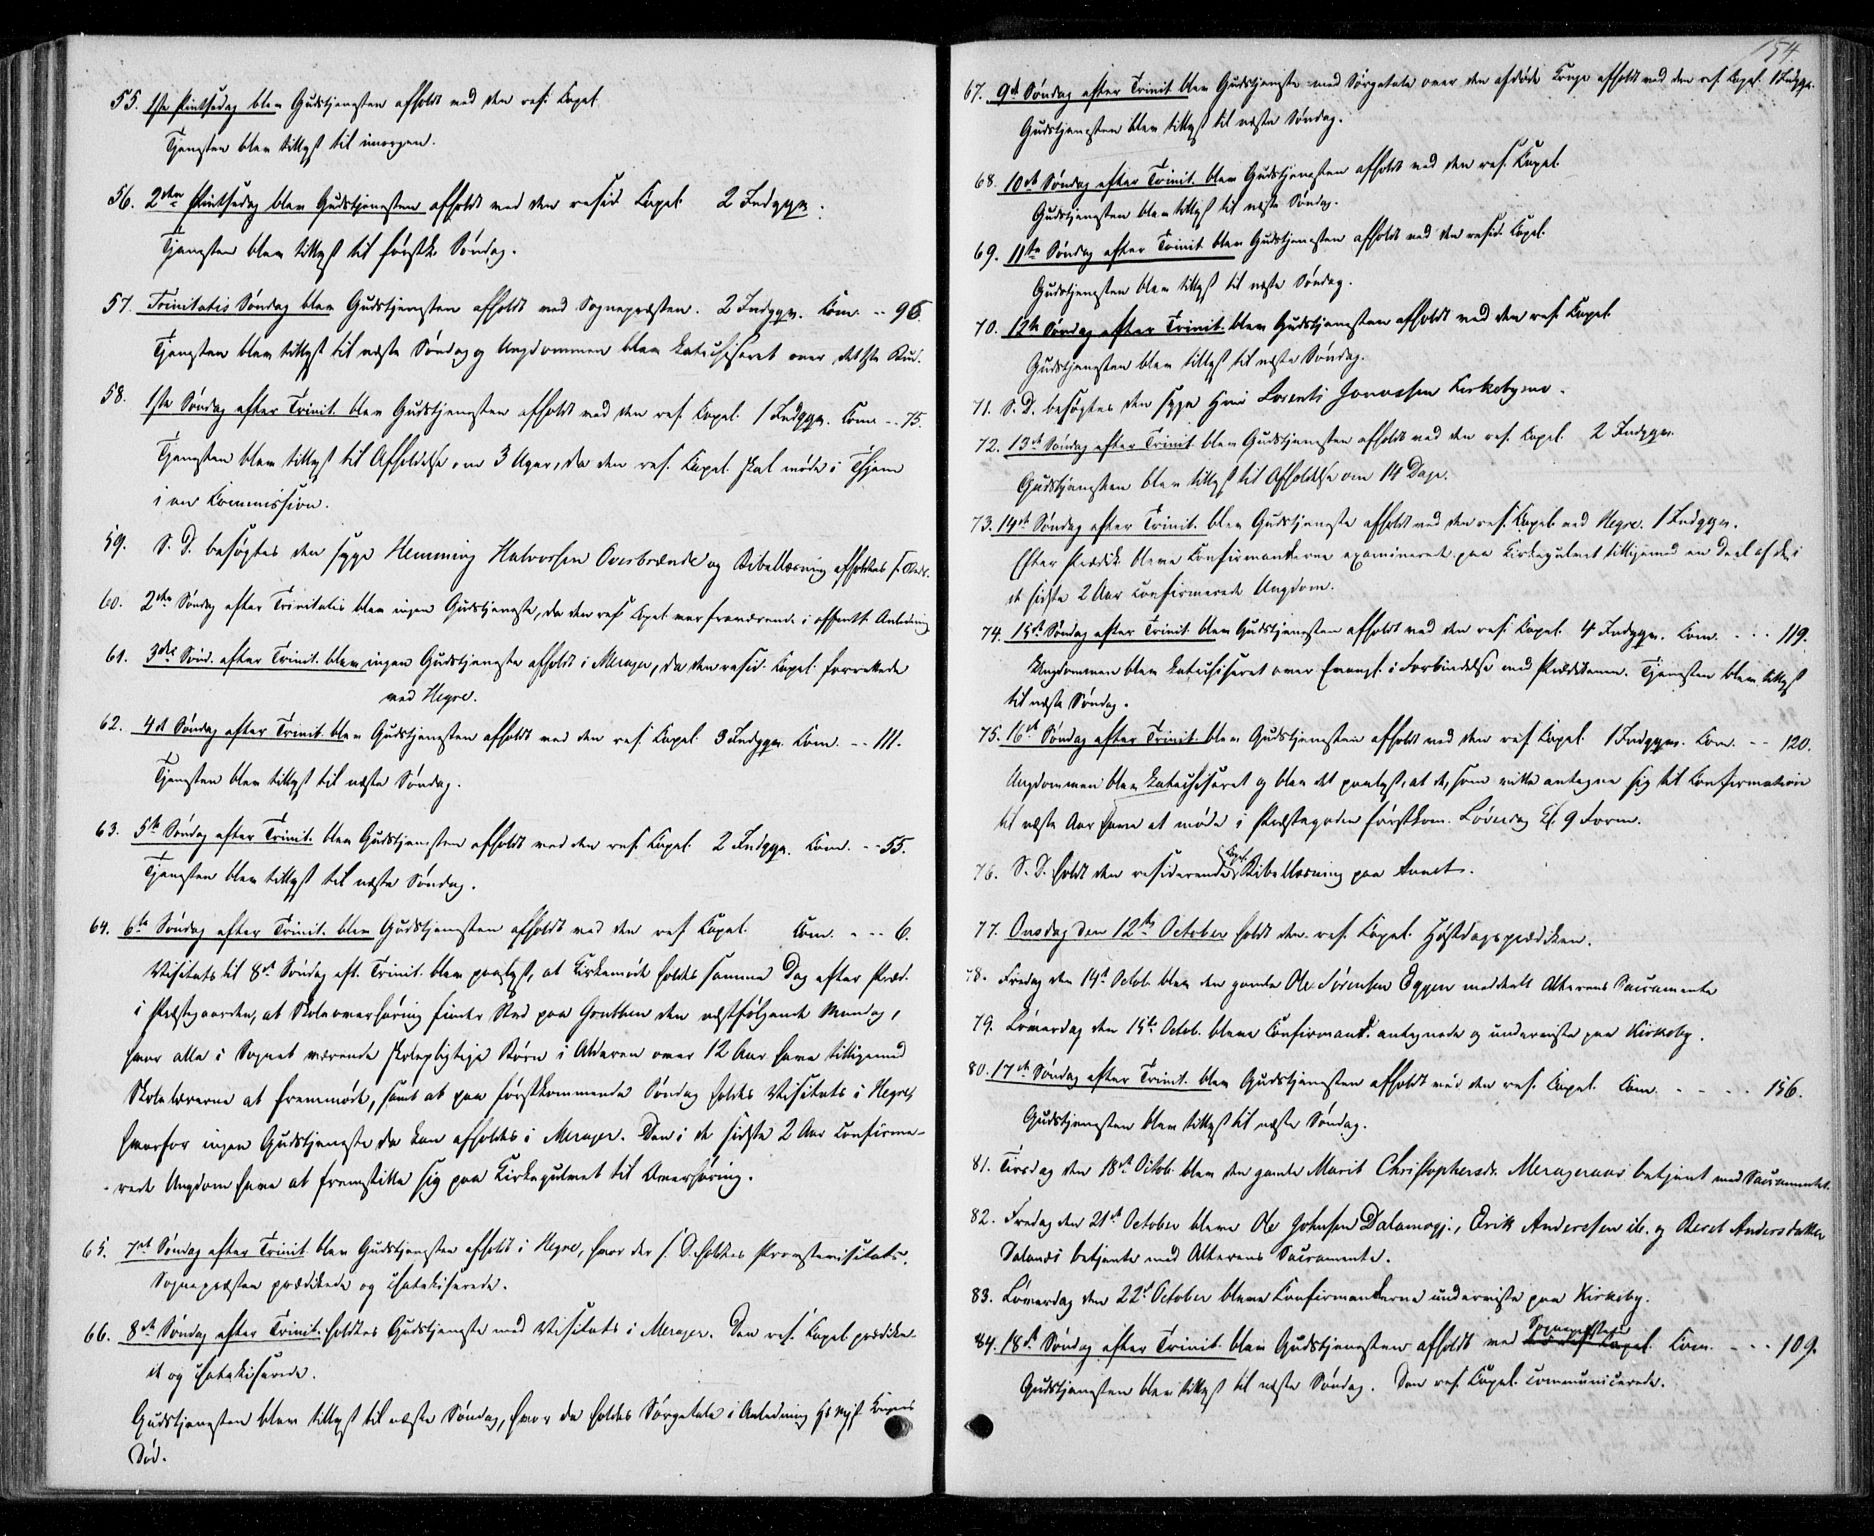 55. 1ste Pintsedag blev Gudstjenesten afholdt ved den res. Capel.
Tjenesten blev tillyst til imorgen.
56. 2den Pintsedag blev Gudstjenesten afholdt ved den resid. Capel. 2 Indgge.
Tjenesten blev tillyst til førstk. Søndag.
57. Trinitatis Søndag blev Gudstjenesten afholdt ved Sognepræsten. 2 Indggn. Com. -- 96.
Tjenesten blev tillyst til næste Søndag og Ungdommen blev catechiseret over det 1ste Bud.
58. 1ste Søndag efter Trinit. blev Gudstjenesten afholdt ved den res. Capel. 1 Indggn. Com. -- 75.
Tjenesten blev tillyst til Afholdelse om 3 Uger, da den res. Capel. skal møde i
i en Commission.
59. S. D. besøgtes den syge Hemming Halvorsen Overbrænde og Bibellæsning afholdtes s. Sted.
60. 2den Søndag efter Trinitatis blev ingen Gudstjeneste, da den res. Capel. var fraværende i offentl. Anledning
61. 3die Sønd. efter Trinit. blev ingen Gudstjeneste afholdt i Meraker, da den resid. Capel. forrettede
ved Hegre.
62. 4de Søndag efter Trinit. blev Gudstjenesten afholdt ved den res. Capel. 3 Indggn. Com. -- 111.
Tjenesten blev tillyst til næste Søndag.
63. 5te Søndag efter Trinit. blev Gudstjenesten afholdt ved den res. Capel. 2 Indggn. Com. -- 55.
Tjenesten blev tillyst til næste Søndag.
64. 6te Søndag efter Trinit. blev Gudstjenesten afholdt ved den res. Capel. Com. - -- 6.
Visitats til 8de Søndag eft. Trinit. blev paalyst, at Kirkemøde holdes samme Dag efter Præd.
i Præstegaarden, at Skoleoverhøring finder Sted paa den næstfølgende Mandag,
hvor alle i Sognet værende skolepligtige Børn i Alderen over 12 Aar have tilligemed
Skolelærerne at fremmøde, samt at paa førstkommende Søndag holdes Visitats i Hegre,
hvorfor ingen Gudstjeneste da kan afholdes i Meraker. Den i de sidste 2 Aar confirme-
rede Ungdom have at fremstille sig paa Kirkegulvet til Overhøring.
65. 7de Søndag efter Trinit. blev Gudstjenesten afholdt i Hegre, hvor der s. D. holdtes Provstevisitats.
Sognepræsten prædikede og catekiserede.
66. 8de Søndag efter Trinit. holdtes Gudstjeneste med Visitats i Meraker. Den res. Capel. prædike-
de og catekiserede.
Gudstjenesten blev tillyst til næste Søndag, hvor da holdes Sørgetale i Anledning Hs Mjst Kongens
Død.
154.
67. 9de Søndag efter Trinit. blev Gudstjeneste med Sørgetale over den afdøde Konge afholdt ved den res. Capel. 1 Indggn.
Gudstjenesten blev tillyst til næste Søndag.
68. 10de Søndag efter Trinit. blev Gudstjenesten afholdt ved den res. Capel.
Gudstjenesten blev tillyst til næste Søndag.
69. 11te Søndag efter Trinit. blev Gudstjenesten afholdt ved den resid. Capel.
Gudstjenesten blev tillyst til næste Søndag.
70. 12te Søndag efter Trinit. blev Gudstjenesten afholdt ved den res. Capel.
Gudstjenesten blev tillyst til næste Søndag.
71. S. D. besøgtes den syge Lorents Jonassen Kirkebymo.
72. 13de Søndag efter Trinit. blev Gudstjenesten afholdt ved den res. Capel. 2 Indggn.
Gudstjenesten blev tillyst til Afholdelse om 14 Dage.
73. 14de Søndag efter Trinit. blev Gudstjeneste afholdt ved den res. Capel. ved Hegre. 1 Indggn.
Efter Prædik. bleve Confirmanderne examineret paa Kirkegulvet tilligemed en Deel af de i
de sidste 2 Aar confirmerede Ungdom.
74. 15de Søndag efter Trinit. blev Gudstjenesten afholdt ved den res. Capel. 4 Indggn. Com. - - - 119.
Ungdommen blev catechiseret over Evangel. i Forbindelse med Prædikenen. Tjenesten blev tillyst
til næste Søndag.
75. 16de Søndag efter Trinit. blev Gudstjenesten afholdt ved den res. Capel. 1 Indggn. Com. -- 120.
Ungdommen blev catechiseret og blev det paalyst, at de, som ville antegne sig til Confirmation
til næste Aar have at møde i Præstegaarden førstkom. Løverdag Kl. 9 Form.
76. S. D. holdt den residerende Capel. Bibellæsning paa
77. Onsdag den 12te October holdt den res. Capel. Høstdagsprædiken.
78. Fredag den 14de Octob. blev den gamle Ole Sørensen Eggen meddeelt Alterens Sacramente
79. Løverdag den 15de Octob. bleve Confirmand. antegnede og underviste paa Kirkeby.
80. 17de Søndag efter Trinit. blev Gudstjenesten afholdt ved den res. Capel. Com. - - - - 156.
Gudstjenesten blev tillyst til næste Søndag.
81. Tirsdag den 18de Octob. blev den gamle Marit Christophersdr. Merageraas betjent med Sacramentet.
82. Fredag den 21de October bleve Ole Johnsen Dalamogj., Erik Anderssen ib. og Beret Andersdatter
Dalaadi betjente med Alterens Sacramente.
83. Løverdag den 22de October bleve Confirmanderne underviste paa Kirkeby.
84. 18de Søndag efter Trinit. blev Gudstjenesten afholdt ved Sognepræsten Com. - - - 109.
Gudstjenesten blev tillyst til næste Søndag. Den res. Capel. communicerede.